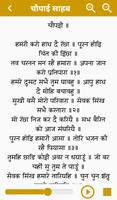 चौपाई साहब
चौपई ॥
हमरी करो हाथ दै रछा ॥ पूरन होइ
चित की इछा ॥
तव चरनन मन रहै हमारा ॥ अपना जान
करो प्रतिपारा ॥
हमरे दुसट सभै तुम घावहु ॥ आपु हाथ
दै मोहि बचावहु ॥
सुखी बसै मोरो परिवारा ॥ सेवक सिख
सभै करतारा ॥
मो रछा निज कर दै करियै ॥ सभ
बैरिन कौ आज संघरियै ॥
पूरन होइ हमारी आसा ॥ तोरि भजन की
रहै पियासा ॥
तुमहि छाडि कोई अवर न धयाऊं ॥ जो
बर चहों सु तुमते पाऊं ॥
सेवक सिख हमारे तारियहि ॥ चुन चुन शंतृ